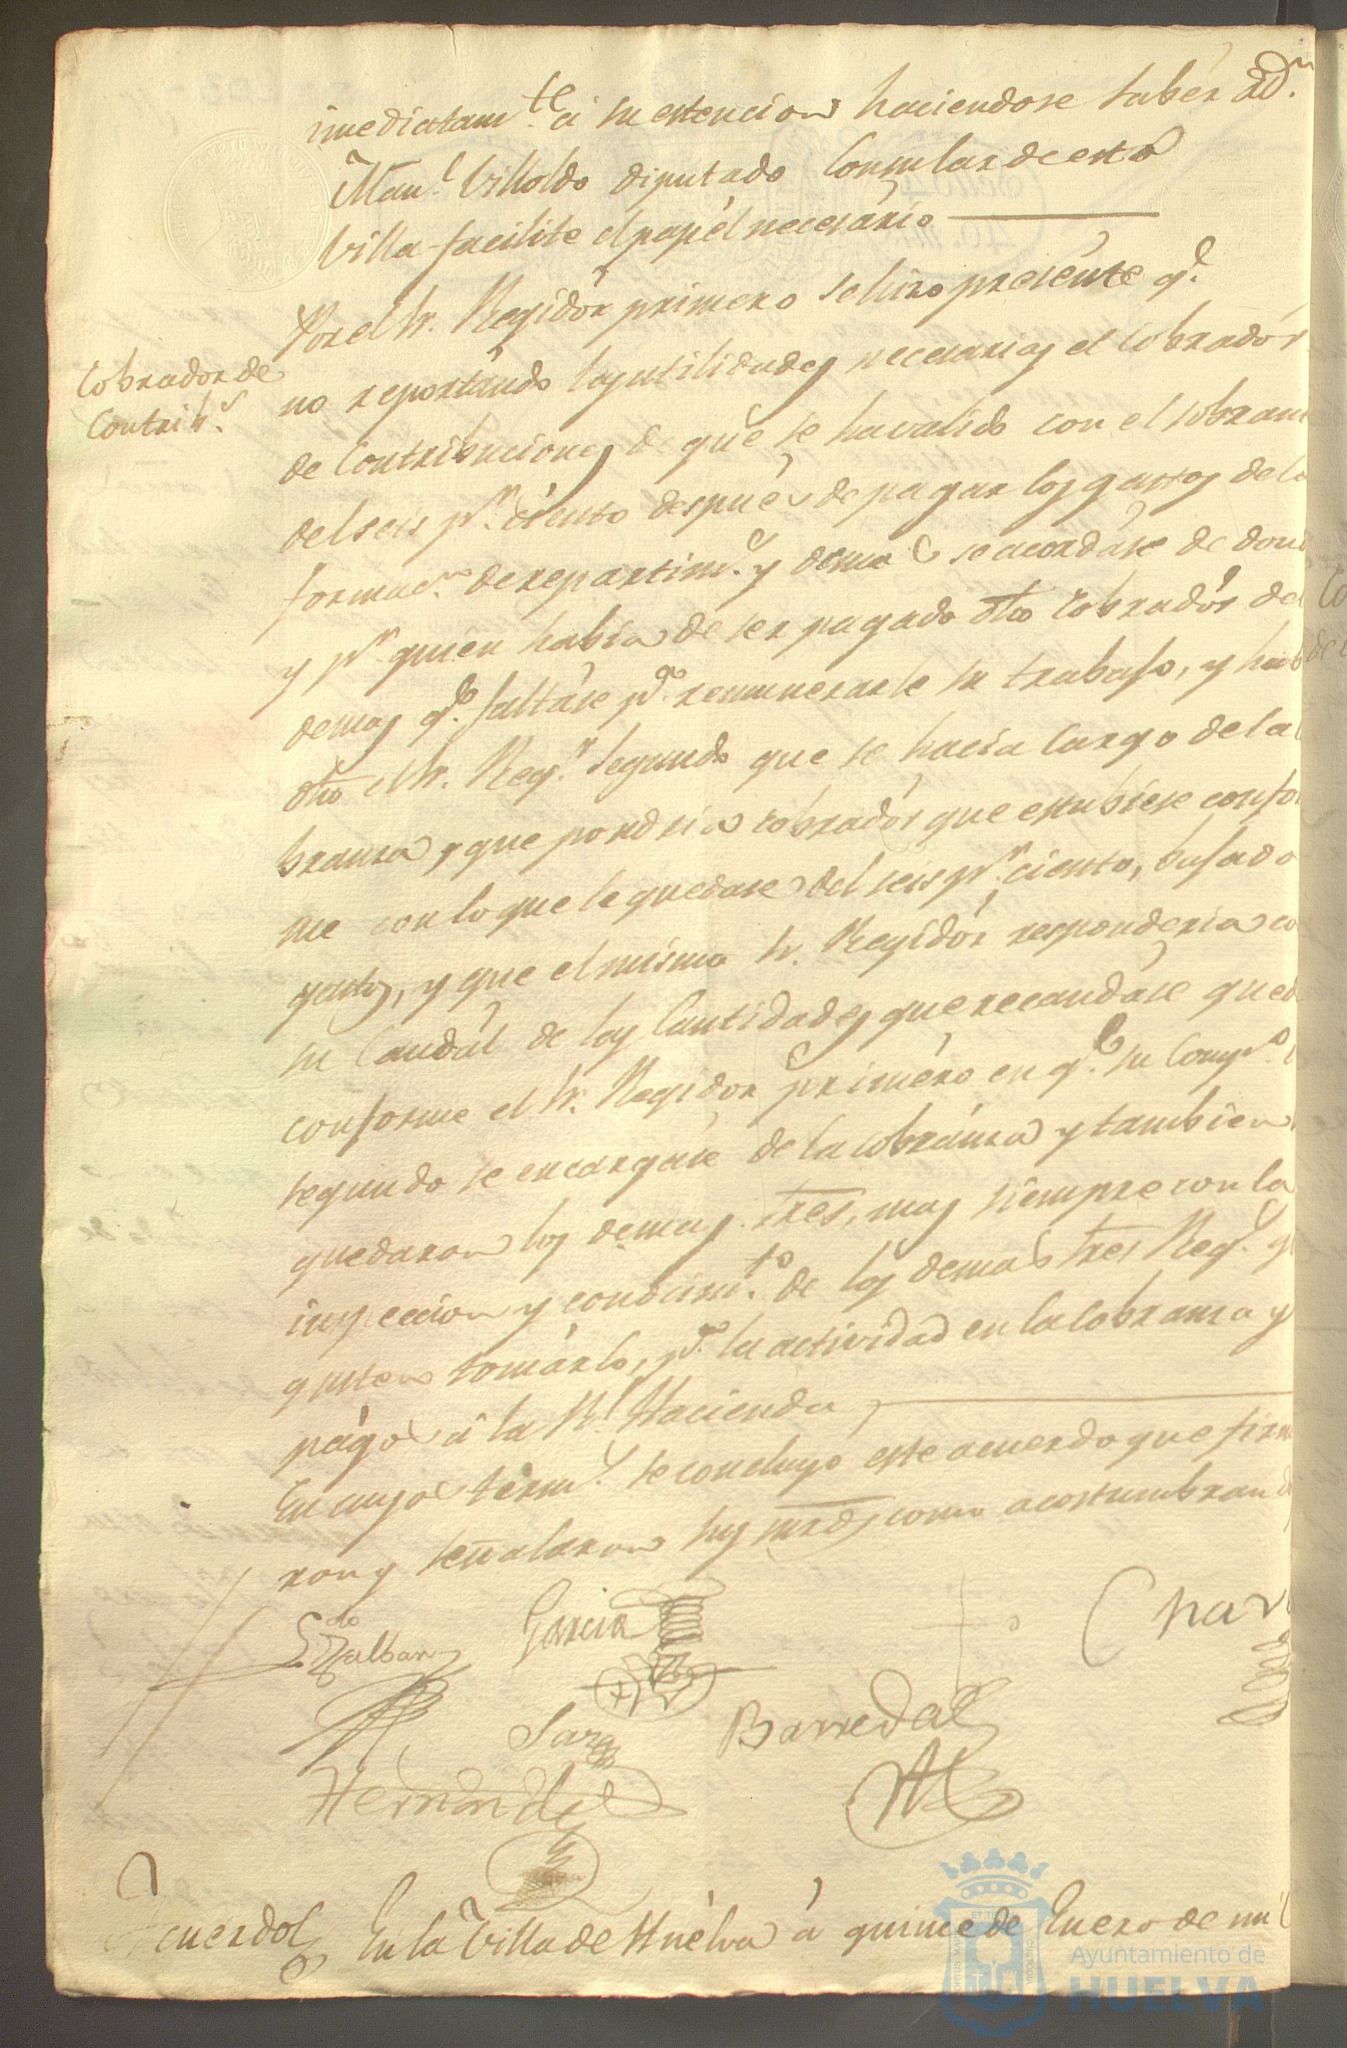 imediatam.te á su estencion haciendose saber á D.n
Man.l Villoldo diputado Consular de esta
Villa facilite el papel necesario
Por el Sr. Regidor primero se hizo presente q.e
no reportando las utilidades necesarias el Cobrador
Cobrador de
Contrib.s
de Contribuciones de que se ha valido con el sobran
del seis p.r ciento despues de pagar los gastos de la
formac.n de repartim.s y demas se acordase de dond
y p.r quien habia de ser pagado dho Cobrador de
demas q.e faltase p.a remunerarle su trabajo, y hab
dho el Sr. Reg.r segundo que se hacia Cargo de la
branza y que pondria cobrador que estubiese confor
me con lo que le quedase del seis p.r ciento, bajado
gastos, y que el mismo Sr. Regidor responderia co
su Caudal de las Cantidades que recaudase qued
conforme el Sr. Regidor primero en q.e su Comp.o
segundo se encargase de la cobranza y tambien
quedaron los demas tres, mas siempre con la
inspeccion y conocim.to de los demas tres Reg.s q
gusten tomarlo, p.a la actividad en la Cobranza y
pago á la R.l Hacienda
En cuyos term.s se concluyo este acuerdo que firm
ron y señalaron sus mrds como acostumbran d
Garcia
Char
Barreda
Hernandez
Acuerdo En la Villa de Huelva á quince de Enero de mil
Ayuntamiento de
HUELVA